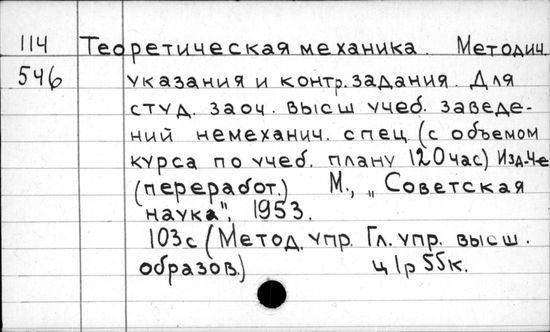 114 Теоретическая механика. Методич.
546 указания и контр. задания. Для
студ. заоч. высш учеб. заведе-
ний немеханич. спец (с объемом
курса по учеб. плану 120 час) Изд. 4е
(переработ.) М., „Советская
наука", 1953.
103с (Метод. упр. Гл. упр. высш.
образов.) ц 1р 55к.